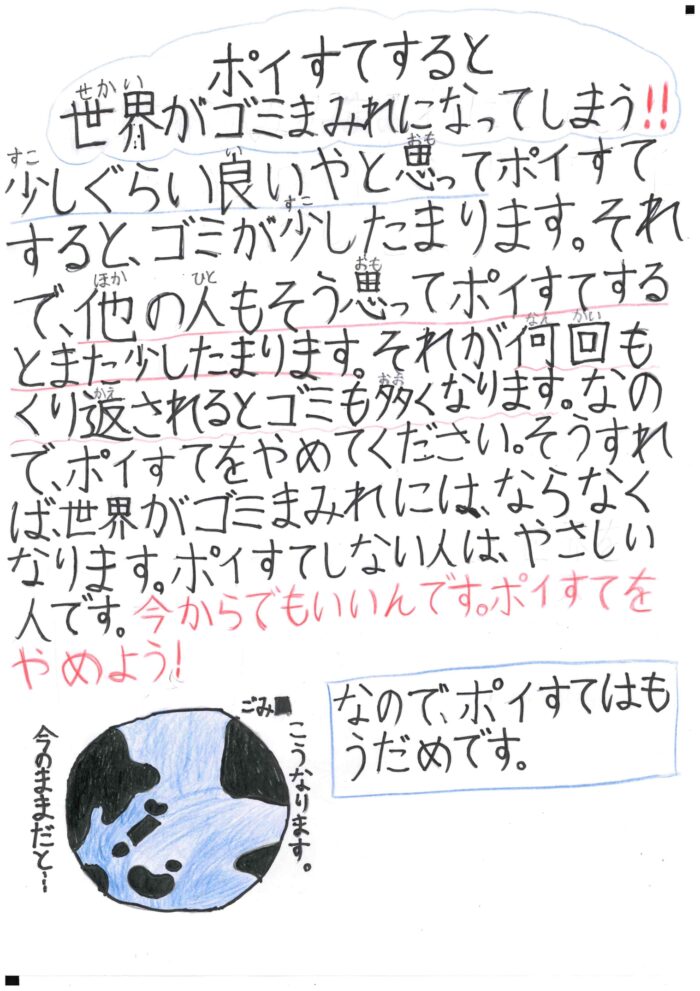 ポイすてすると
世界がゴミまみれになってしまう!!
せかい
少しぐらい良いやと思ってポイすて
すこ
い
おも
すると、ゴミが少したまります。それ
すこ
で、他の人もそう思ってポイすてする
ほか
ひと
おも
とまた少したまります。それが何回も
なん
かい
くり返されるとゴミも多くなります。なの
かえ
おお
で、ポイすてをやめてください。そうすれ
ば、世界がゴミまみれには、ならなく
なります。ポイすてしない人は、やさしい
人です。今からでもいいんです。ポイすてを
やめよう!
なので、ポイすてはも
うだめです。
ごみ■
こうなります。
今のままだと…